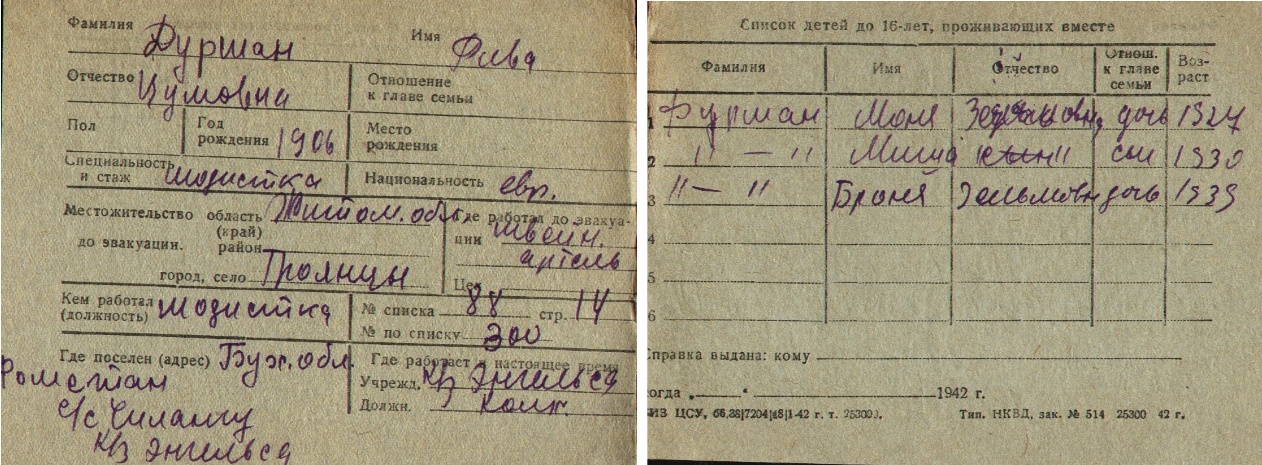 Фамилия Фурман Имя Рива
Отчество Цумовна Отношение к главе семьи
Пол Год рождения 1906 Место рождения
Специальность и стаж модистка Национальность евр.
Местожительство до эвакуации. область (край) Житом. обл. Где работал до эвакуации швейн. артель
район
город, село Троянцы Цех
Кем работал (должность) модистка № списка 88 стр. 14
№ по списку 300
Где поселен (адрес) Бух. обл. Где работает в настоящее время
Рометан Учрежд. к/з Энгельса
с/с Чилангу Должн. колх.
к/з Энгельса
Список детей до 16-лет, проживающих вместе
Фамилия Имя Отчество Отнош. к главе семьи Возраст
1 Фурман Моня дочь 1927
2 " — " Миша " сын 1930
3 " — " Броня Зельмовн дочь 1939
4
5
6
Справка выдана: кому
когда „ “ 1942 г.
Тип. НКВД, зак. № 514 25300 42 г.